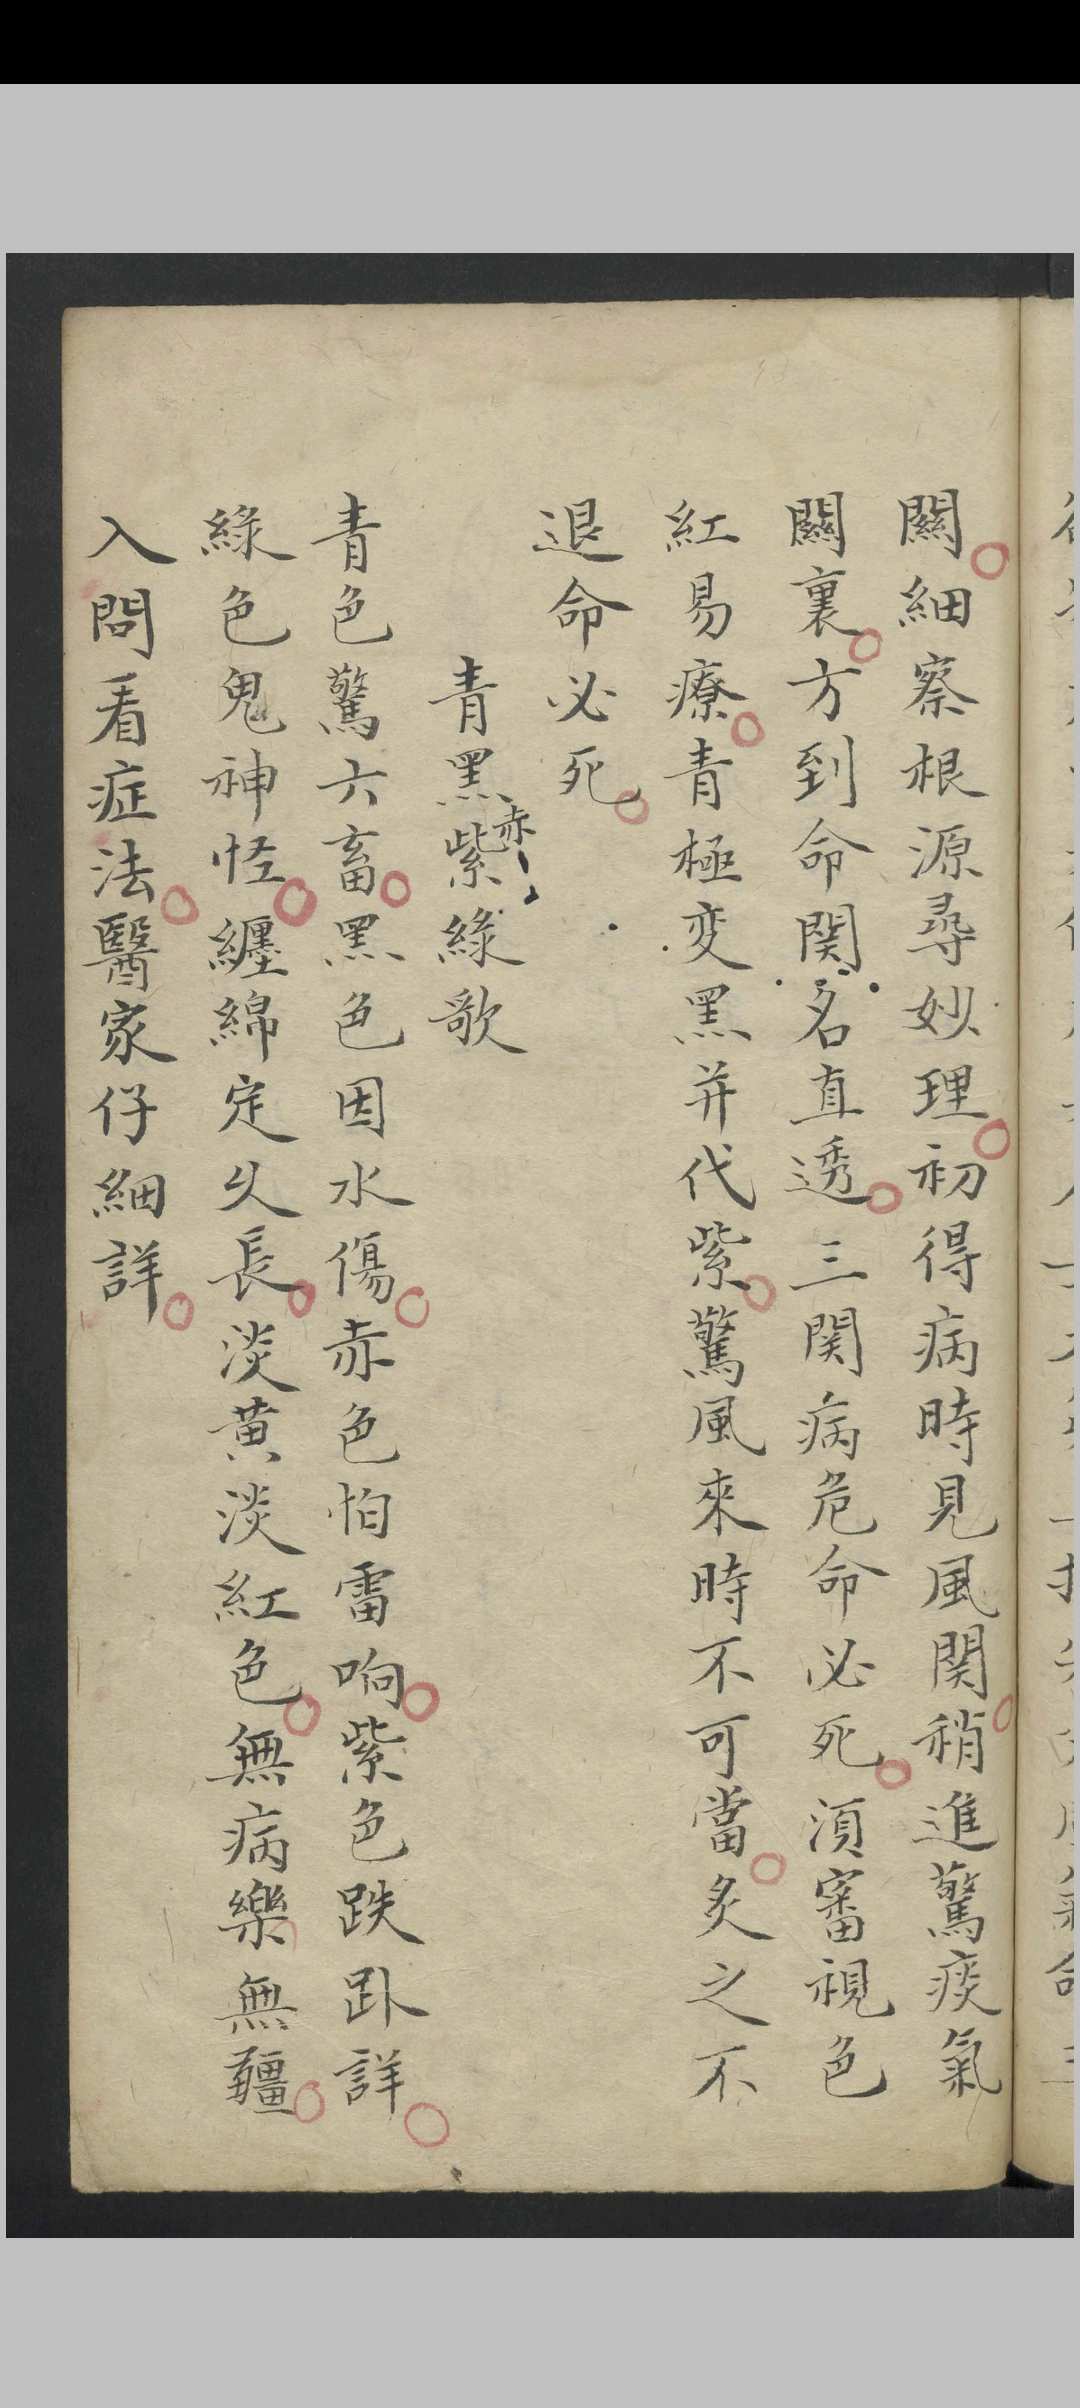 關細察根源尋妙理初得病時見風関稍進驚痰氣
關裏方到命関名直透三関病危命必死湏審視色
紅易療青極変黑并代紫驚風來時不可當炙之不
退命必死
青黑赤紫綠歌
青色驚六畜黑色因水傷赤色怕雷响紫色跌趴詳
綠色鬼神怪纏綿定久長淡黄淡紅色無病樂無疆
入問看症法醫家仔細詳